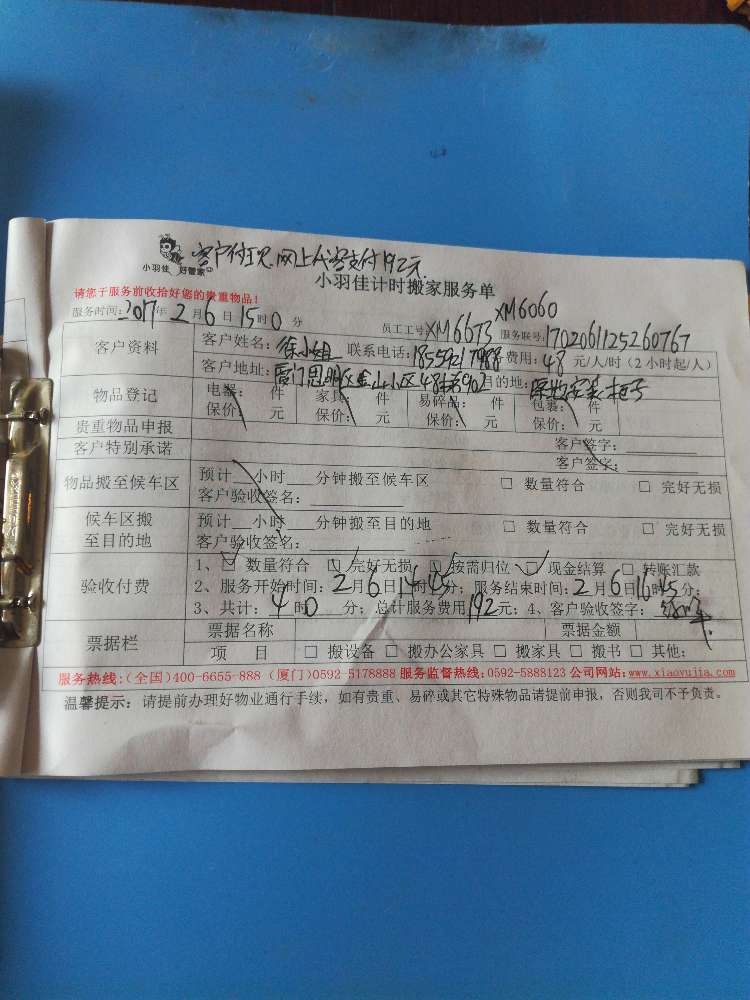 客户付现，网上代客支付192元
小羽佳 好管家
小羽佳计时搬家服务单
请您于服务前收拾好您的贵重物品！
XM6060
服务时间：2017年2月6日15时0分 员工工号XM6673 服务联号：1702061125260767
客户资料 客户姓名：徐小姐 联系电话：18559217988 费用：48元/人/时（2小时起/人）
客户地址：厦门思明区金山小区48栋902 目的地：
物品登记 电器： 件 家具： 件 易碎品： 件 包装： 件
保价： 元 保价： 元 保价： 元 保价： 元
贵重物品申报
客户特别承诺 客户签字：
客户签字：
物品搬至候车区 预计__小时___分钟搬至候车区 □ 数量符合 □ 完好无损
客户验收签名：
候车区搬至目的地 预计__小时___分钟搬至目的地 □ 数量符合 □ 完好无损
客户验收签名：
验收付费 1、☑ 数量符合 ☑ 完好无损 ☑ 按需归位 ☑ 现金结算 □ 转账汇款
2、服务开始时间：2月6日14时45分；服务结束时间：2月6日16时45分；
3、共计：4时0分；总计服务费用192元；4、客户验收签字：
票据栏 票据名称 票据金额
项 目 □ 搬设备 □ 搬办公家具 □ 搬家具 □ 搬书 □ 其他：
服务热线：（全国）400-6655-888（厦门）0592-5178888 服务监督热线：0592-5888123 公司网站：www.xiaoyujia.com
温馨提示：请提前办理好物业通行手续，如有贵重、易碎或其它特殊物品请提前申报，否则我司不予负责。